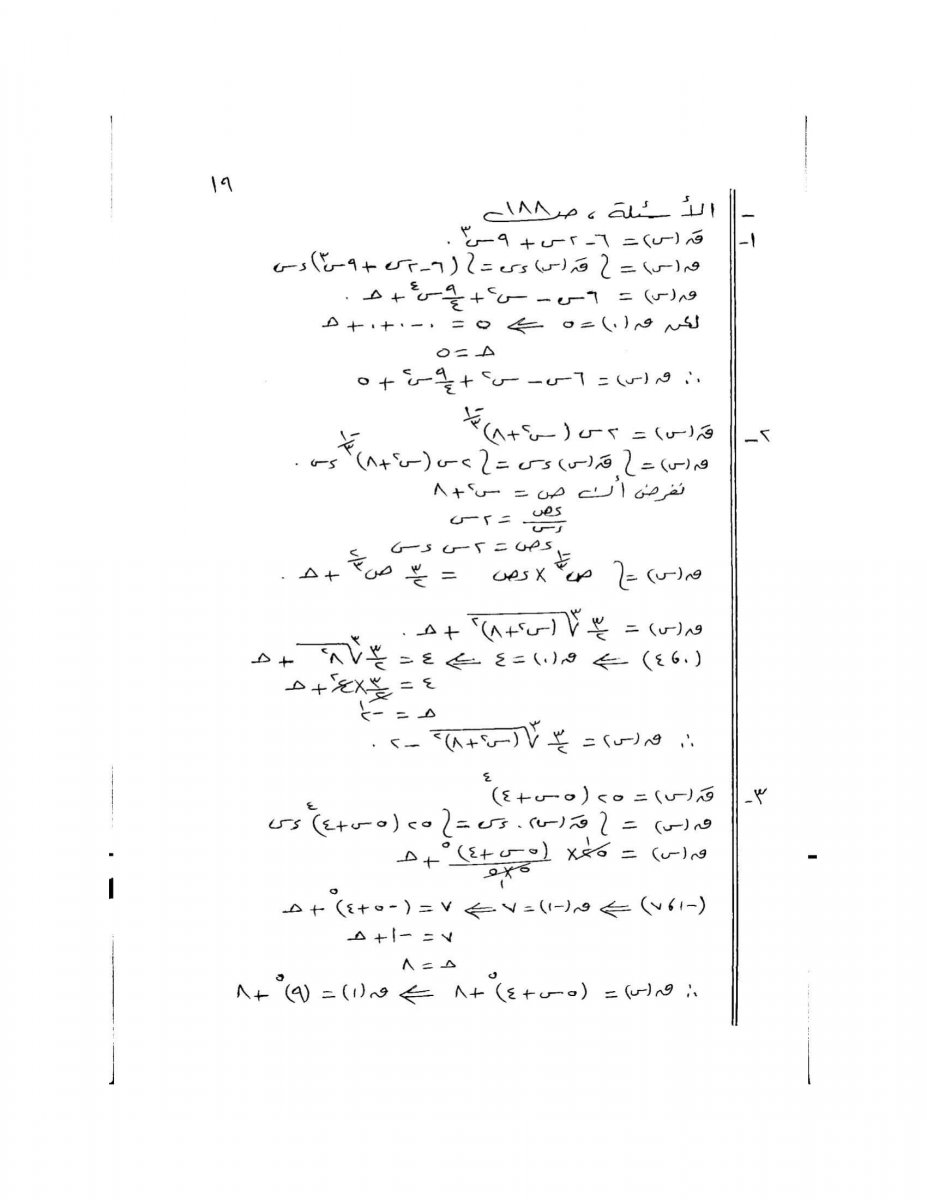 ١٩
- الأسئلة ، ص١٨٨
١- قَ(س) = ٦ - ٢س + ٩س^٣ .
ق(س) = ∫ قَ(س) ءس = ∫ (٦ - ٢س + ٩س^٣) ءس
ق(س) = ٦س - س^٢ + ٩/٤ س^٤ + ﺟ .
لكن ق(٠) = ٥ ⇐ ٥ = ٠ - ٠ + ٠ + ﺟ
ﺟ = ٥
∴ ق(س) = ٦س - س^٢ + ٩/٤ س^٢ + ٥
٢- قَ(س) = ٢س (س^٢ + ٨)^(-١/٣)
ق(س) = ∫ قَ(س) ءس = ∫ ٢س (س^٢ + ٨)^(-١/٣) ءس .
نفرض أن ص = س^٢ + ٨
ءص/ءس = ٢س
ءص = ٢س ءس
ق(س) = ∫ ص^(-١/٣) × ءص = ٣/٢ ص^(٢/٣) + ﺟ .
ق(س) = ٣/٢ ∛(س^٢ + ٨)^٢ + ﺟ .
(٠ ، ٤) ⇐ ق(٠) = ٤ ⇐ ٤ = ٣/٢ ∛٨^٢ + ﺟ
٤ = ٣/٢ × ٤ + ﺟ
ﺟ = -٢
∴ ق(س) = ٣/٢ ∛(س^٢ + ٨)^٢ - ٢ .
٣- قَ(س) = ٢٥ (٥س + ٤)^٤
ق(س) = ∫ قَ(س) . ءس = ∫ ٢٥ (٥س + ٤)^٤ ءس
ق(س) = ٢٥ × (٥س + ٤)^٥ / ٥×٥ + ﺟ
(-١ ، ٧) ⇐ ق(-١) = ٧ ⇐ ٧ = (-٥ + ٤)^٥ + ﺟ
٧ = -١ + ﺟ
ﺟ = ٨
∴ ق(س) = (٥س + ٤)^٥ + ٨ ⇐ ق(١) = (٩)^٥ + ٨